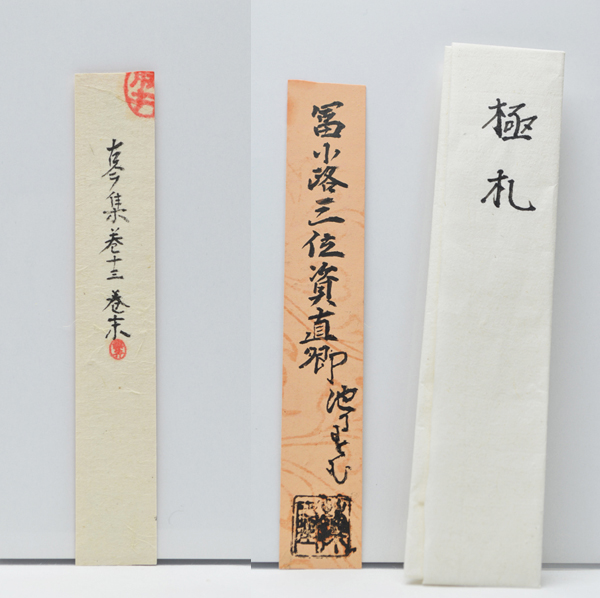 古今集 巻十三 巻末
冨小路三位資直卿 池にすむ
極札